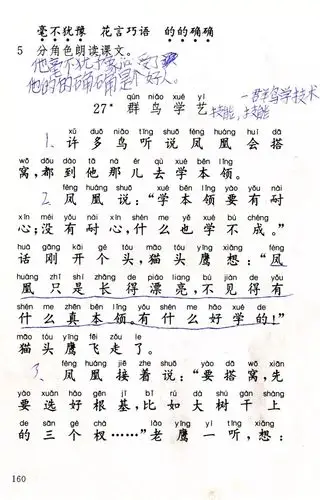 毫不犹豫 花言巧语 的的确确
5 分角色朗读课文。
他毫不犹豫
他的的确确是个好人。
qún niǎo xué yì
27* 群鸟学艺
一群鸟学技术
技能,技能
xǔ duō niǎo tīng shuō fèng huáng huì dā
1. 许多鸟听说凤凰会搭
wō dōu dào tā nà ér qù xué běn lǐng
窝,都到他那儿去学本领。
fèng huáng shuō xué běn lǐng yào yǒu nài
2. 凤凰说:“学本领要有耐
xīn méi yǒu nài xīn shén me yě xué bù chéng
心;没有耐心,什么也学不成。”
huà gāng kāi gè tóu māo tóu yīng xiǎng fèng
话刚开个头,猫头鹰想:“凤
huáng zhǐ shì zhǎng de piào liang bú jiàn de yǒu
凰只是长得漂亮,不见得有
shén me zhēn běn lǐng yǒu shén me hǎo xué de
什么真本领。有什么好学的!”
māo tóu yīng fēi zǒu le
猫头鹰飞走了。
fèng huáng jiē zhe shuō yào dā wō xiān
3. 凤凰接着说:“要搭窝,先
yào xuǎn hǎo gēn jī bǐ rú dà shù gàn shàng
要选好根基,比如大树干上
de sān gè chà lǎo yīng yì tīng xiǎng
的三个杈……”老鹰一听,想:
160